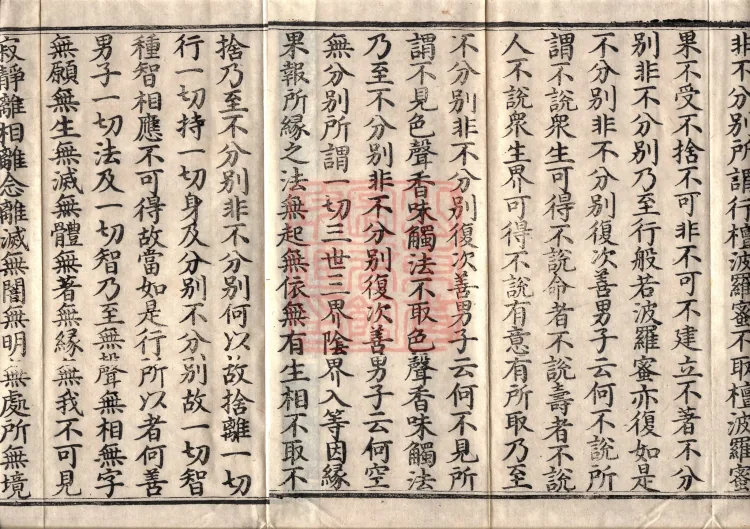 非不分別所謂行檀波羅蜜不取檀波羅蜜
果不受不捨不可非不可不建立不著不分
別非不分別乃至行般若波羅蜜亦復如是
不分別非不分別復次善男子云何不說所
謂不說衆生可得不說命者不說壽者不說
人不說衆生界可得不說有意有所取乃至
不分別非不分別復次善男子云何不見所
謂不見色聲香味觸法不取色聲香味觸法
乃至不分別非不分別復次善男子云何空
無分別所謂一切三世三界陰界入等因緣
果報所緣之法無起無依無有生相不取不
捨乃至不分別非不分別何以故捨離一切
行一切持一切身及分別不分別故一切智
種智相應不可得故當如是行所以者何善
男子一切法及一切智乃至無聲無相無字
無願無生無滅無體無著無緣無我不可見
寂靜離相離念離滅無闇無明無處所無境